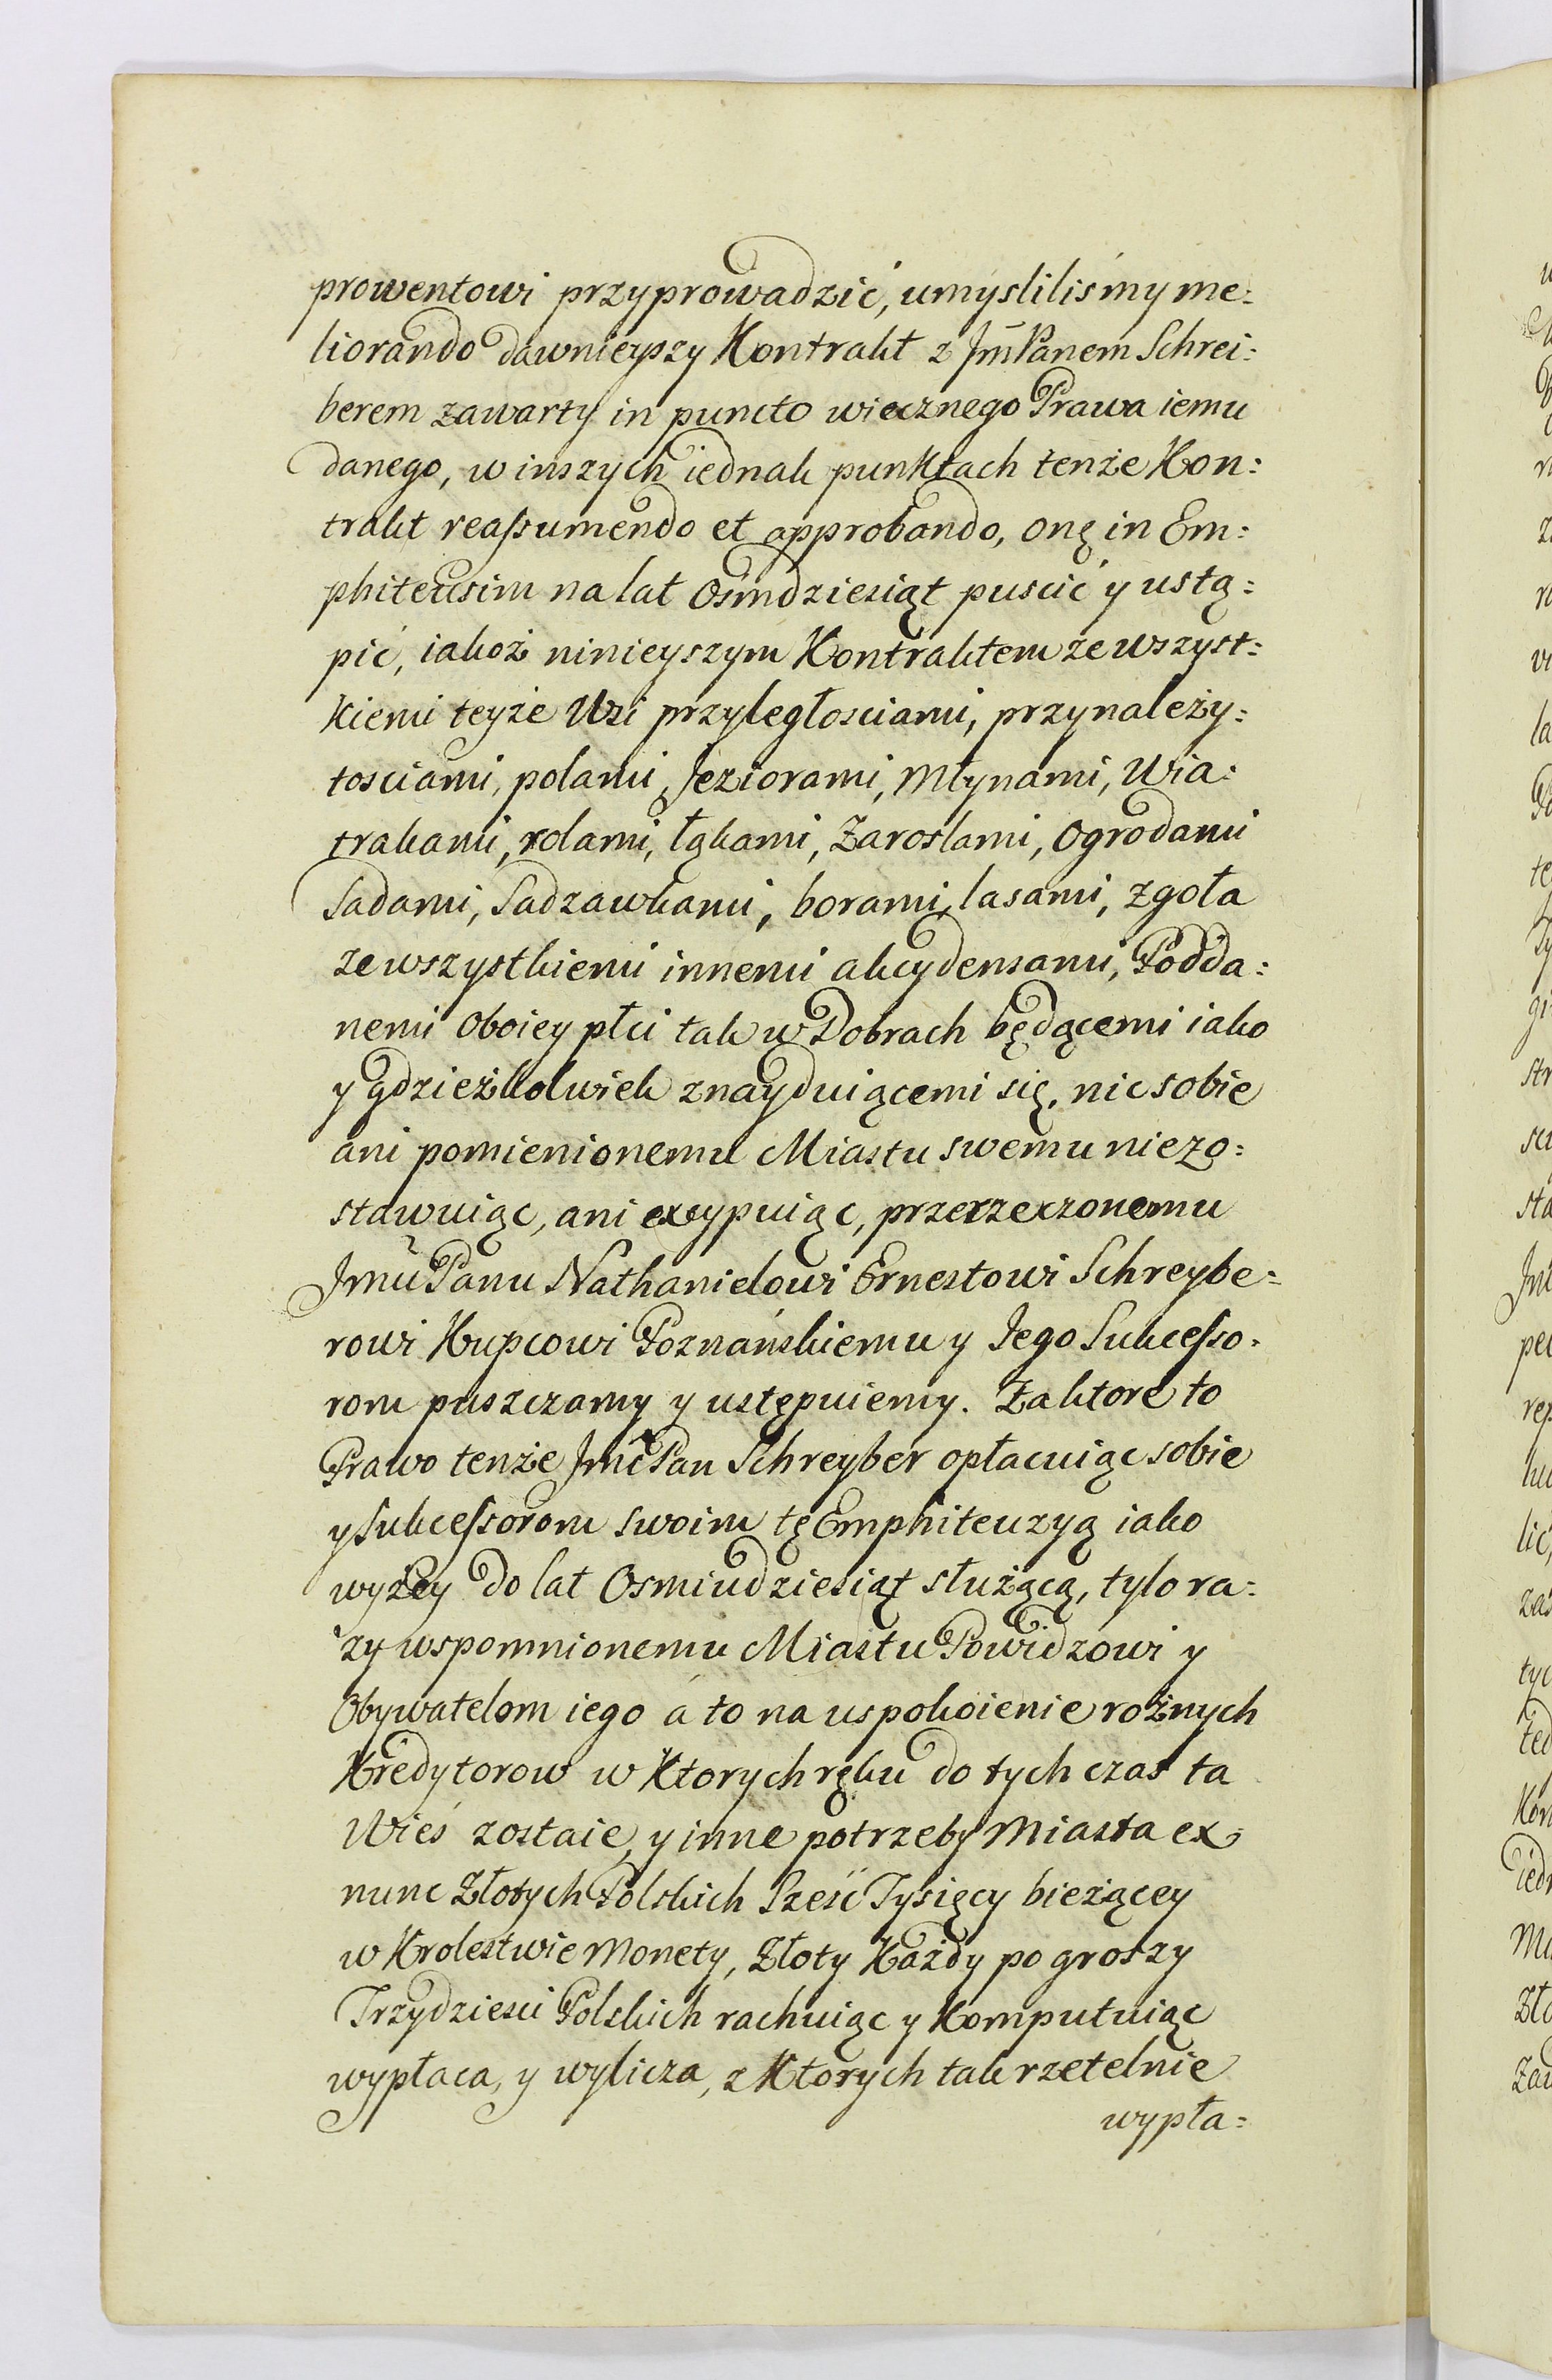 prowentowi przyprowadzić, umyslilismy me:
liorando dawnieyszy Kontrakt z Jm̄ Panem Schrei:
berem zawarty in puncto wiecznego Prawa iemu
danego, w inszych iednak punktach tenże Kon:
trakt reaſsumendo et approbando, onę in Em:
phiteusim na lat osmdziesiąt puscić y ustą:
pić, iakoż ninieyszym Kontraktem ze wszyst:
kiemi teyże Wsi przyległosciami, przynależy:
tosciami, polami, Jeziorami, Młynami, Wia:
trakami, rolami, łąkami, Zaroslami, Ogrodami
Sadami, Sadzawkami, borami, lasami, zgoła
ze wszystkiemi innemi akcydensami, Podda:
nemi oboiey płci tak w Dobrach będącemi iako
y gdzieżkolwiek znayduiącemi się, nic sobie
ani pomienionemu Miastu swemu niezo:
stawuiąc, ani excypuiąc, przerzeczonemu
Jmu Panu Nathanielowi Ernestowi Schreybe:
rowi Kupcowi Poznańskiemu y Jego Sukceſso:
rom puszczamy y ustępuiemy. Za ktore to
Prawo tenże Jmć Pan Schreyber opłacuiąc sobie
y Sukceſsorom swoim tę Emphiteuzyą iako
wyżey do lat Osmiudziesiąt służącą, tylo ra:
zy wspomnionemu Miastu Powidzowi y
Obywatelom iego á to na uspokoienie rożnych
Kredytorow w Ktorych ręku do tych czas ta
Wieś zostaie, y inne potrzeby Miasta ex
nunc Złotych Polskich Sześć Tysięcy bieżącey
w Krolestwie Monety, Złoty Każdy po groszy
Trzydziesci Polskich rachuiąc y Komputuiąc
wypłaca, y wylicza, z Ktorych tak rzetelnie
wypła: